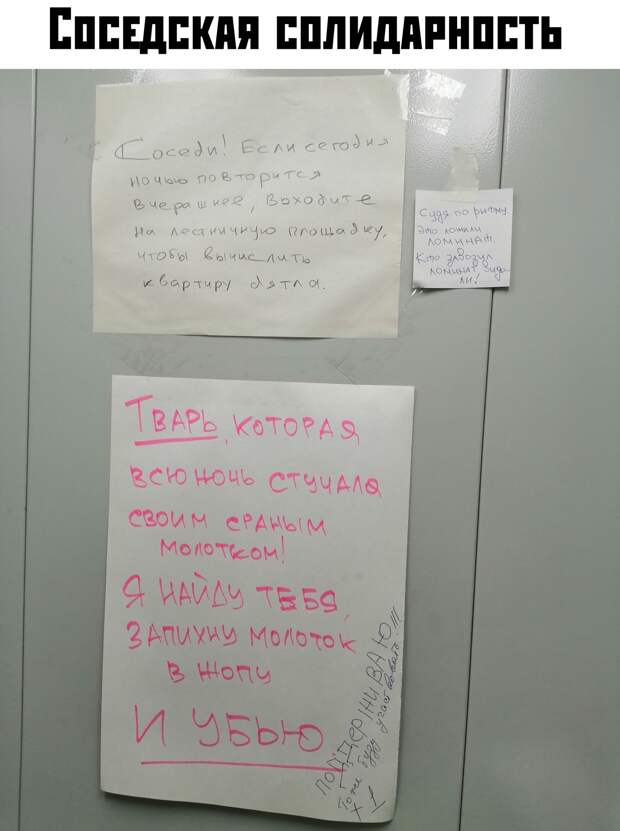 Соседская солидарность
Соседи! Если сегодня
ночью повторится
вчерашнее, выходите
на лестничную площадку,
чтобы вычислить
квартиру дятла.
Судя по ритму
это ложили
ломинат.
Кто завозил
ломинат вида
ли!
Тварь, которая
всю ночь стучала
своим сраным
молотком!
Я найду тебя,
запихну молоток
в жопу
и убью
поддерживаю!!!
Тоже буду участвовать!
+1